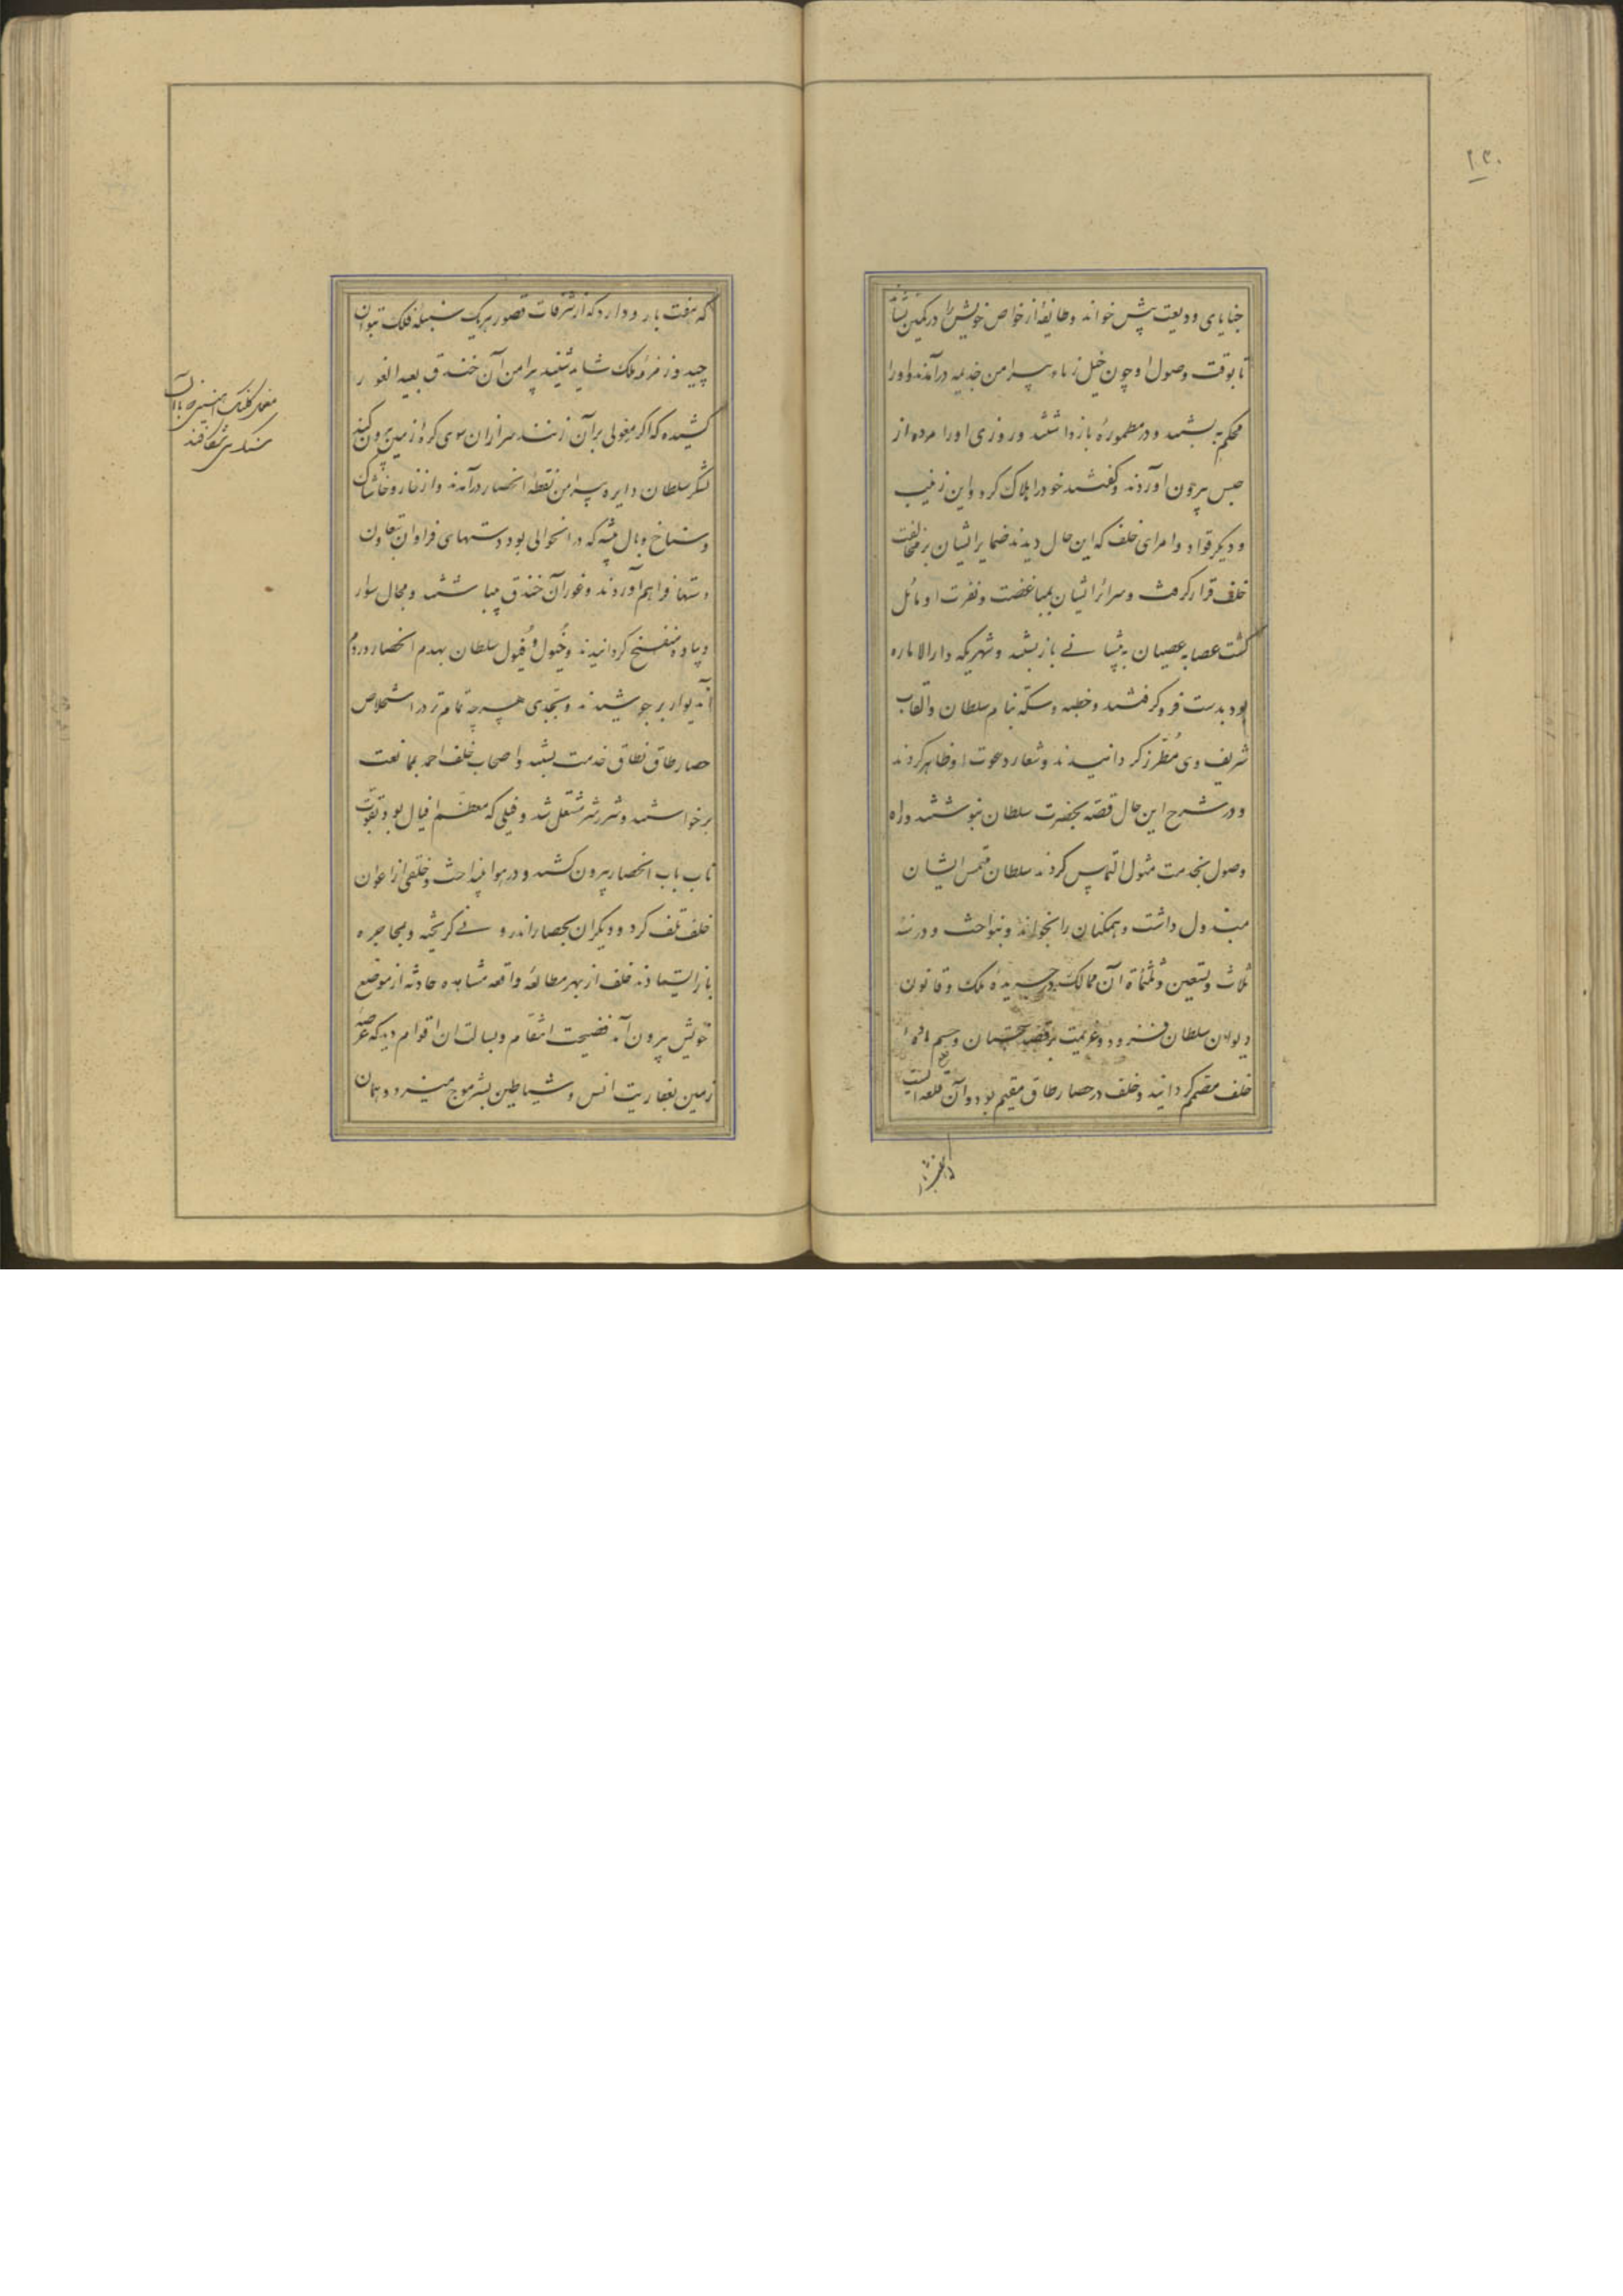 ۲۳۰
خبایای ودیعت پیش خواند وطایفهٔ از خواص خویش را در کمین بنشاند
تا بوقت وصول او چون خیل زباء پیرامن جذیمه درآمدند واو را
محکم به بستند ودر مطمورهٔ بازداشتند وروزی اورا مرده از
حبس بیرون آوردند وگفتند خود را هلاک کرد واین زینب
ودیگر قواد وامرای خلف که این حال دیدند ضمایر ایشان بر مخالفت
خلف قرار گرفت وسرائر ایشان بمباغضت ونفرت او مائل
گشت عصابه عصیان به پیشانی باز بستند وشهریکه دارالاماره
بود بدست فرو گرفتند وخطبه وسکّه بنام سلطان والقاب
شریف وی مُطرّز گردانیدند وشعار دعوت او ظاهر کردند
ودر شرح این حال قصّه بحضرت سلطان نبوشتند وراه
وصول بخدمت مثول التماس کردند سلطان ملتمس ایشان
مبذول داشت وهمگنان را بخواند وبنواخت ودر سنه
ثلاث وتسعین وثلثمأة آن ممالک در جریدهٔ ملک وقانون
دیوان سلطان فزود وعزیمت بر قصد سجستان وحسم مادّهٔ
خلف مصمّم گردانید وخلف در حصار طاق مقیم بود وآن قلعه ایست
که هفت بارو دارد که از شرفات قصور هریک سنبله فلک بتوان
چید وزمزمه ملک شاید شنید پیرامن آن خندق بعید الغور
کشیده که اگر معولی بر آن زنند سر از آن سوی کرهٔ زمین بیرون کند
لشکر سلطان دایره پیرامن نقطه انحصار درآمدند واز خار وخاشاک
وسناخ وبال بیشه که در آنحوالی بود دستهای فراوان بتعاون
دستها فراهم آوردند وغور آن خندق بینباشتند ومجال سوار
وپیاده منفسخ گردانیدند وخُیول وفُیول سلطان بهدم انحصار وردم
آندیوار بر جوشیدند وبتجدی هرچه تمام‌تر در استخلاص
حصار طاق نطاق خدمت بستند واصحاب خلف احمد بممانعت
برخواستند وشرر شر مشتعل شد وفیلی که معظّم افیال بود بقوّت
ناب باب انحصار بیرون کشید ودر هوا بینداخت وخلقی از اعوان
خلف تلف کرد ودیگران بحصار اندرونی گریخته وبمحاجره
باز ایستادند خلف از بهر مطالعهٔ واقعه مشاهده حادثه از موضع
خویش بیرون آمد فضیحت انتقام وبسالت ان اقوام دید که عرصه
زمین بعفاریت انس وشیاطین بشر موج میزد وهمان
معول کلنک آهنین که باآن
سنک می شکافند
که هفت بارو